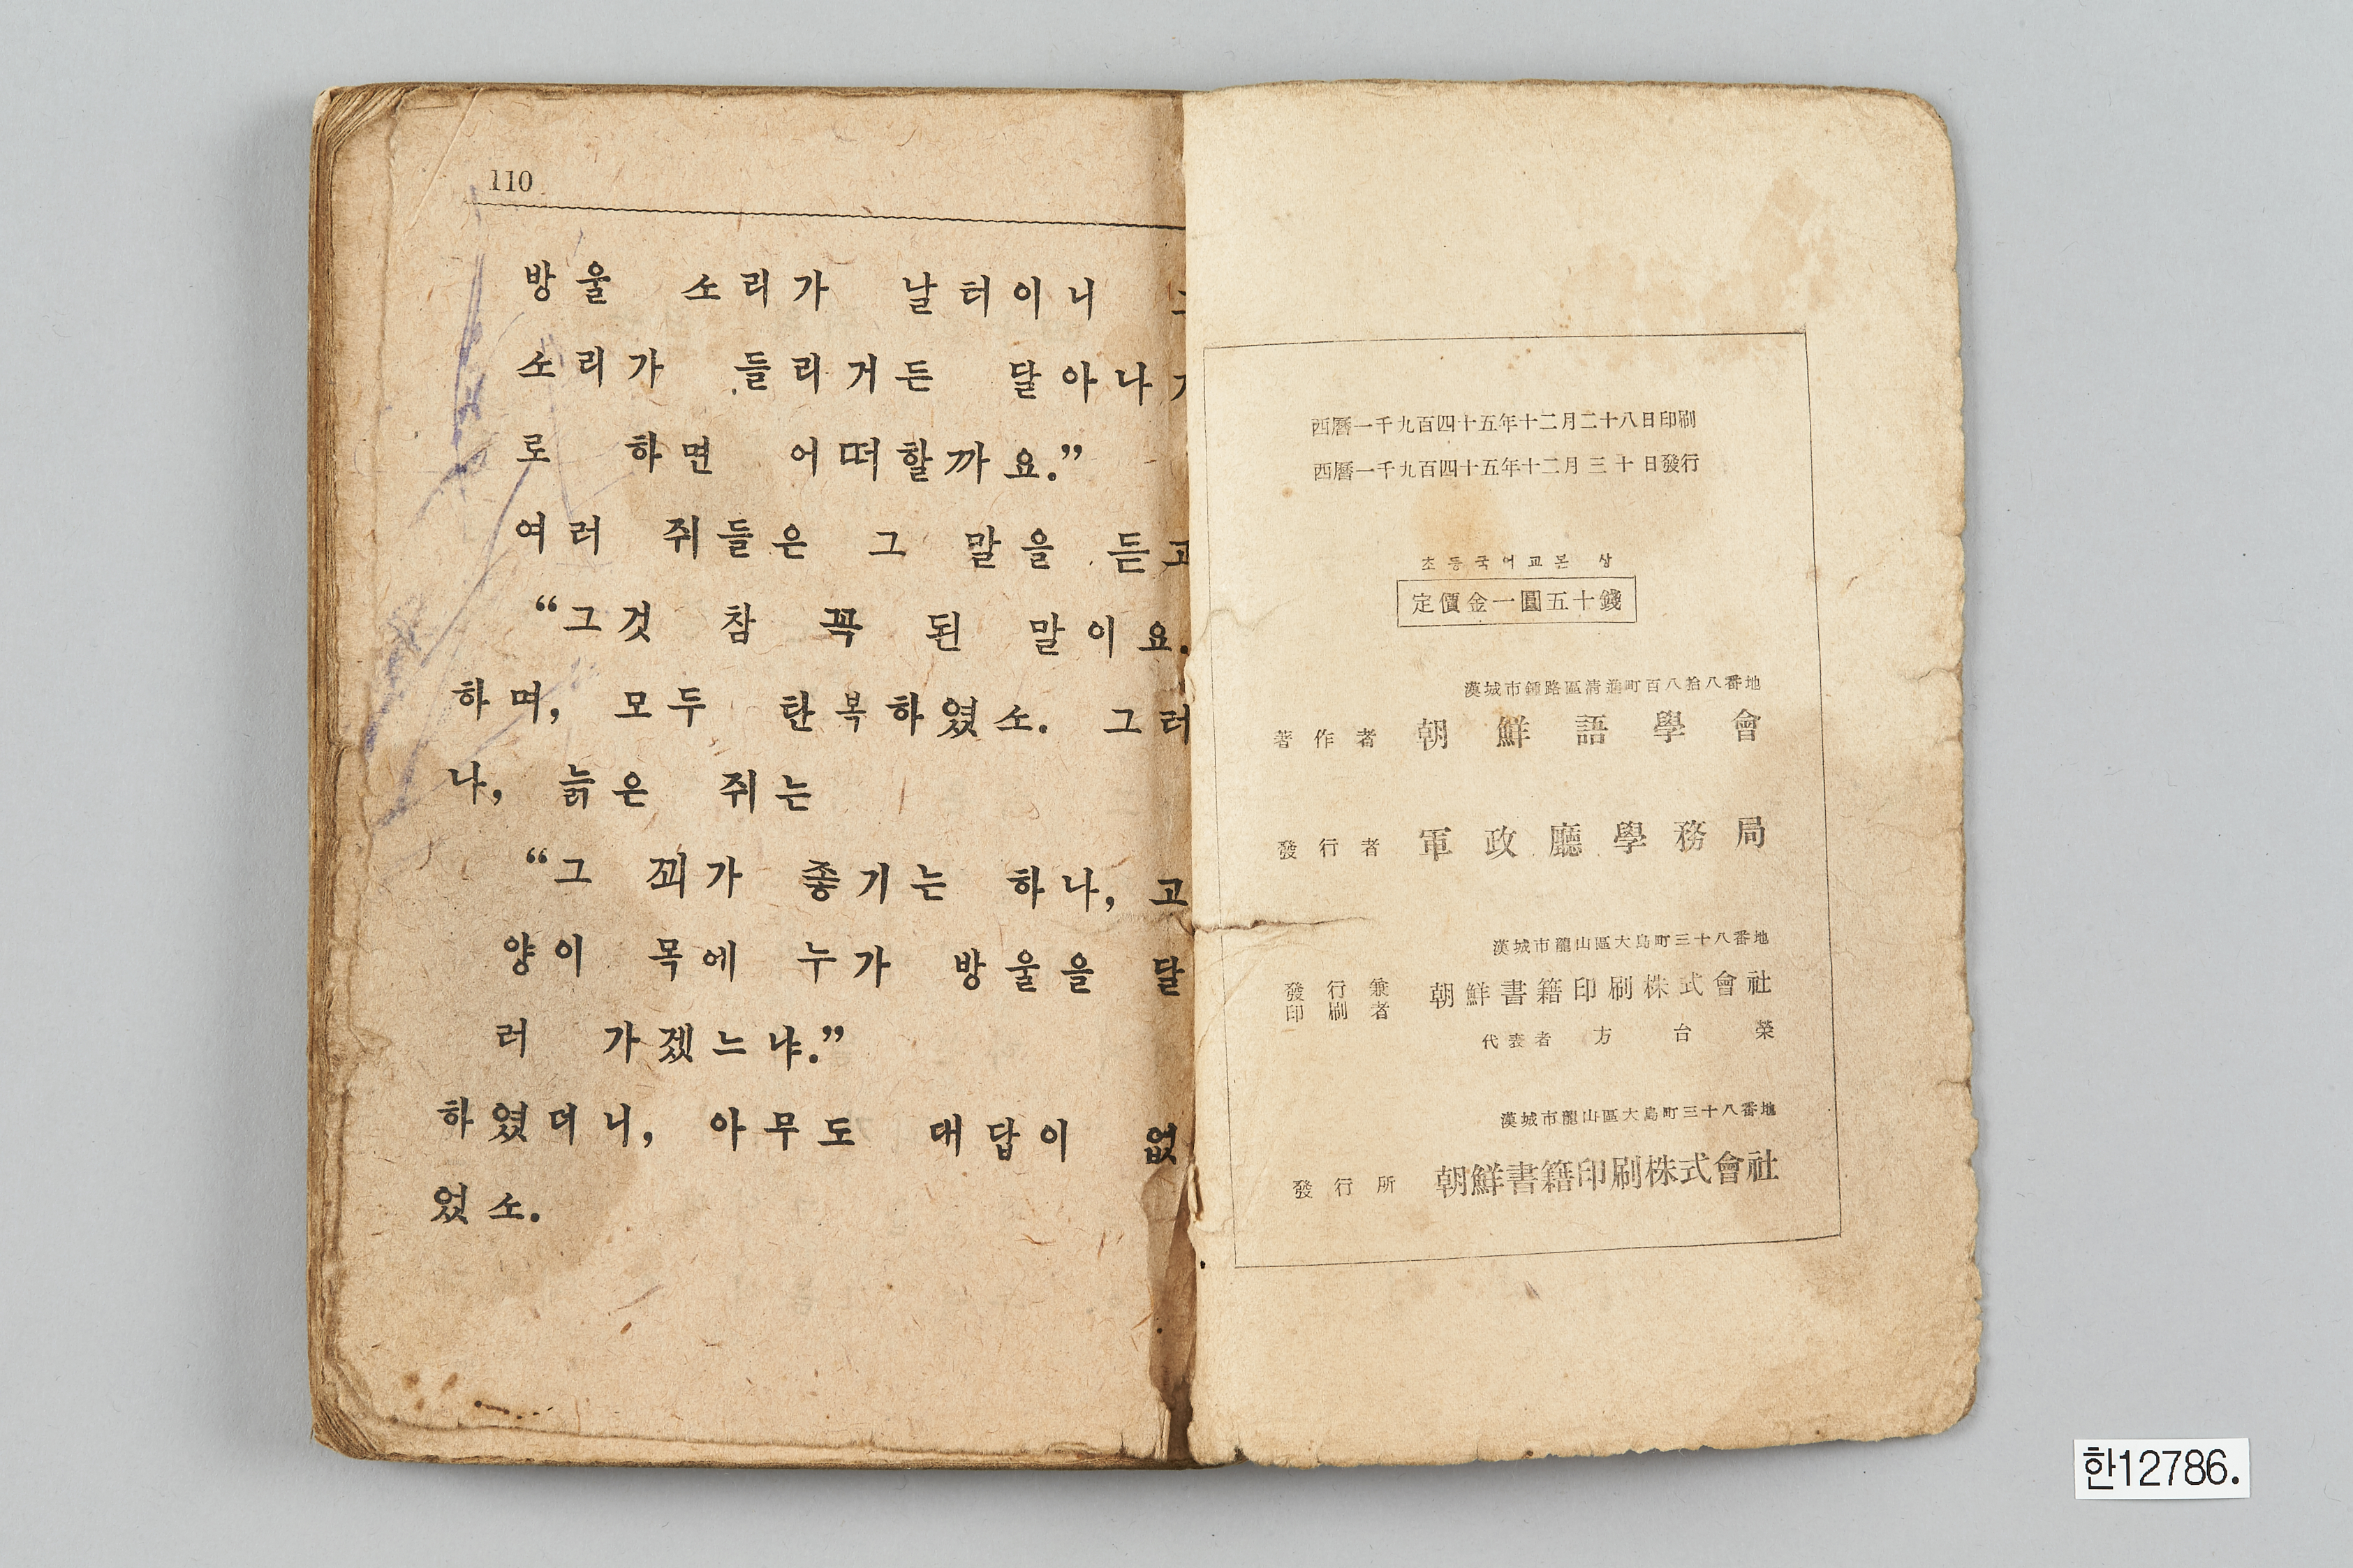 110
방울 소리가 날터이니
소리가 들리거든 달아나
로 하면 어떠할까요.”
여러 쥐들은 그 말을 듣고
“그것 참 꼭 된 말이요.
하며, 모두 탄복하였소. 그러
나, 늙은 쥐는
“그 꾀가 좋기는 하나, 고
양이 목에 누가 방울을 달
러 가겠느냐.”
하였더니, 아무도 대답이 없
었소.
西曆一千九百四十五年十二月二十八日印刷
西曆一千九百四十五年十二月三十日發行
초등국어교본 상
定價金一圓五十錢
漢城市鍾路區清進町百八拾八番地
著作者 朝鮮語學會
發行者 軍政廳學務局
漢城市龍山區大島町三十八番地
發行兼印刷者 朝鮮書籍印刷株式會社
代表者 方台榮
漢城市龍山區大島町三十八番地
發行所 朝鮮書籍印刷株式會社
한12786.